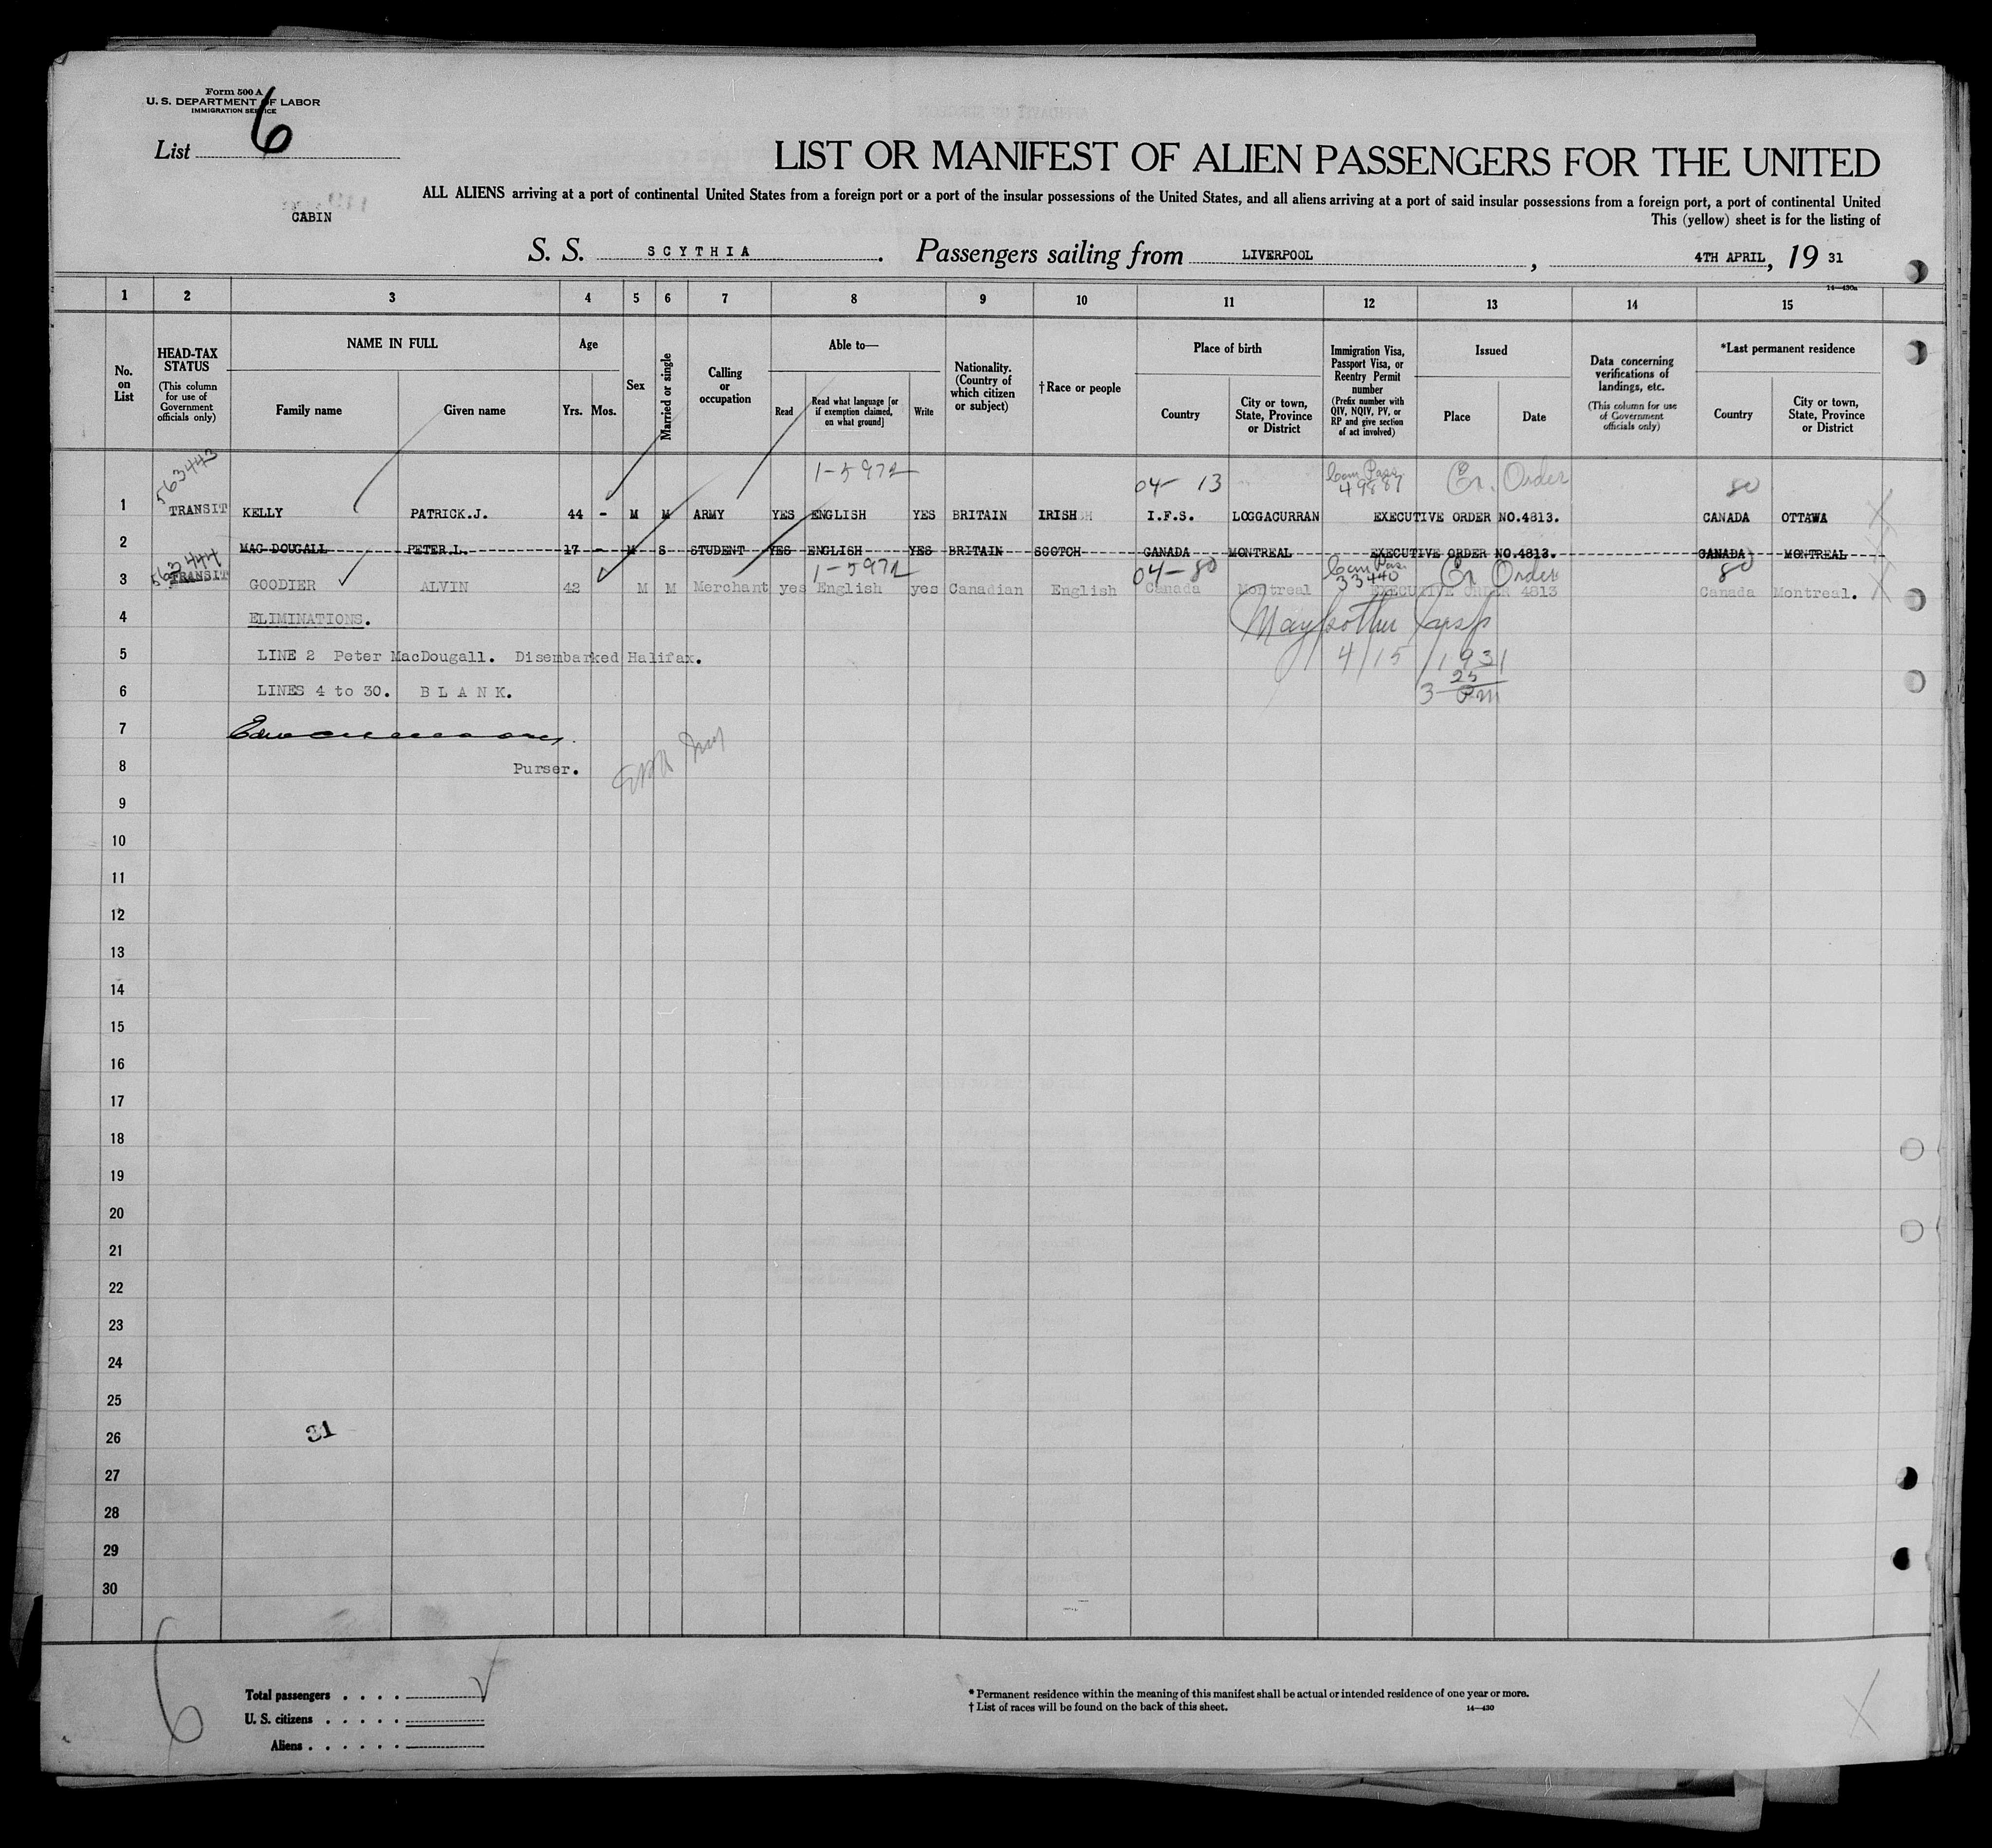 Form 500 A
U. S. DEPARTMENT OF LABOR
IMMIGRATION SERVICE
List 6
LIST OR MANIFEST OF ALIEN PASSENGERS FOR THE UNITED
ALL ALIENS arriving at a port of continental United States from a foreign port or a port of the insular possessions of the United States, and all aliens arriving at a port of said insular possessions from a foreign port, a port of continental United
CABIN
This (yellow) sheet is for the listing of
S. S. SCYTHIA. Passengers sailing from LIVERPOOL, 4TH APRIL, 19 31
14—430a
1 2 3 4 5 6 7 8 9 10 11 12 13 14 15
No. on List
HEAD-TAX STATUS
(This column for use of Government officials only)
NAME IN FULL
Family name
Given name
Age
Yrs. Mos.
Sex
Married or single
Calling or occupation
Able to—
Read
Read what language [or if exemption claimed, on what ground]
Write
Nationality. (Country of which citizen or subject)
†Race or people
Place of birth
Country
City or town, State, Province or District
Immigration Visa, Passport Visa, or Reentry Permit number
(Prefix number with QIV, NQIV, PV, or RP and give section of act involved)
Issued
Place
Date
Data concerning verifications of landings, etc.
(This column for use of Government officials only)
*Last permanent residence
Country
City or town, State, Province or District
563443 1-5972 04- 13 Can Pass. 49887 Ex. Order 80
1 TRANSIT KELLY PATRICK.J. 44 - M M ARMY YES ENGLISH YES BRITAIN IRISH I.F.S. LOGGACURRAN EXECUTIVE ORDER NO.4813. CANADA OTTAWA
2 MAC DOUGALL PETER L. 17 - M S STUDENT YES ENGLISH YES BRITAIN SCOTCH CANADA MONTREAL EXECUTIVE ORDER NO.4813. CANADA MONTREAL
563444 1-5972 04-80 Can Pass. 33440 Ex Order 80
3 TRANSIT GOODIER ALVIN 42 M M Merchant yes English yes Canadian English Canada Montreal EXECUTIVE ORDER 4813 Canada Montreal.
4 ELIMINATIONS.
5 LINE 2 Peter MacDougall. Disembarked Halifax. 4/15/1931
6 LINES 4 to 30. B L A N K. 3 25 PM
7
8 Purser.
9
10
11
12
13
14
15
16
17
18
19
20
21
22
23
24
25
26 31
27
28
29
30
6
Total passengers . . . .
U. S. citizens . . . . .
Aliens . . . . . .
* Permanent residence within the meaning of this manifest shall be actual or intended residence of one year or more.
† List of races will be found on the back of this sheet.
14—430